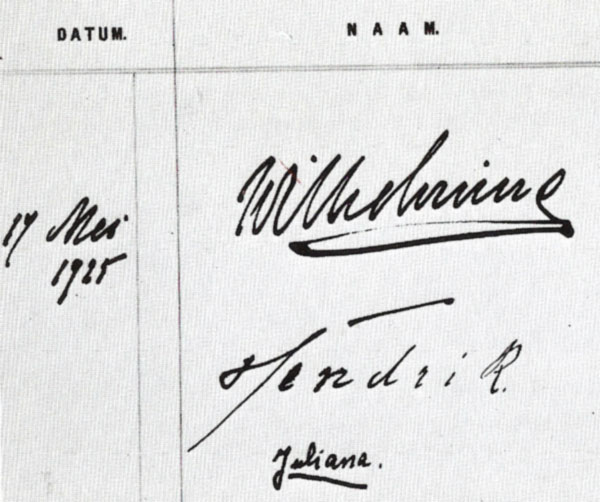 DATUM. NAAM.
17 Mei
1925
Wilhelmina
Hendrik.
Juliana.